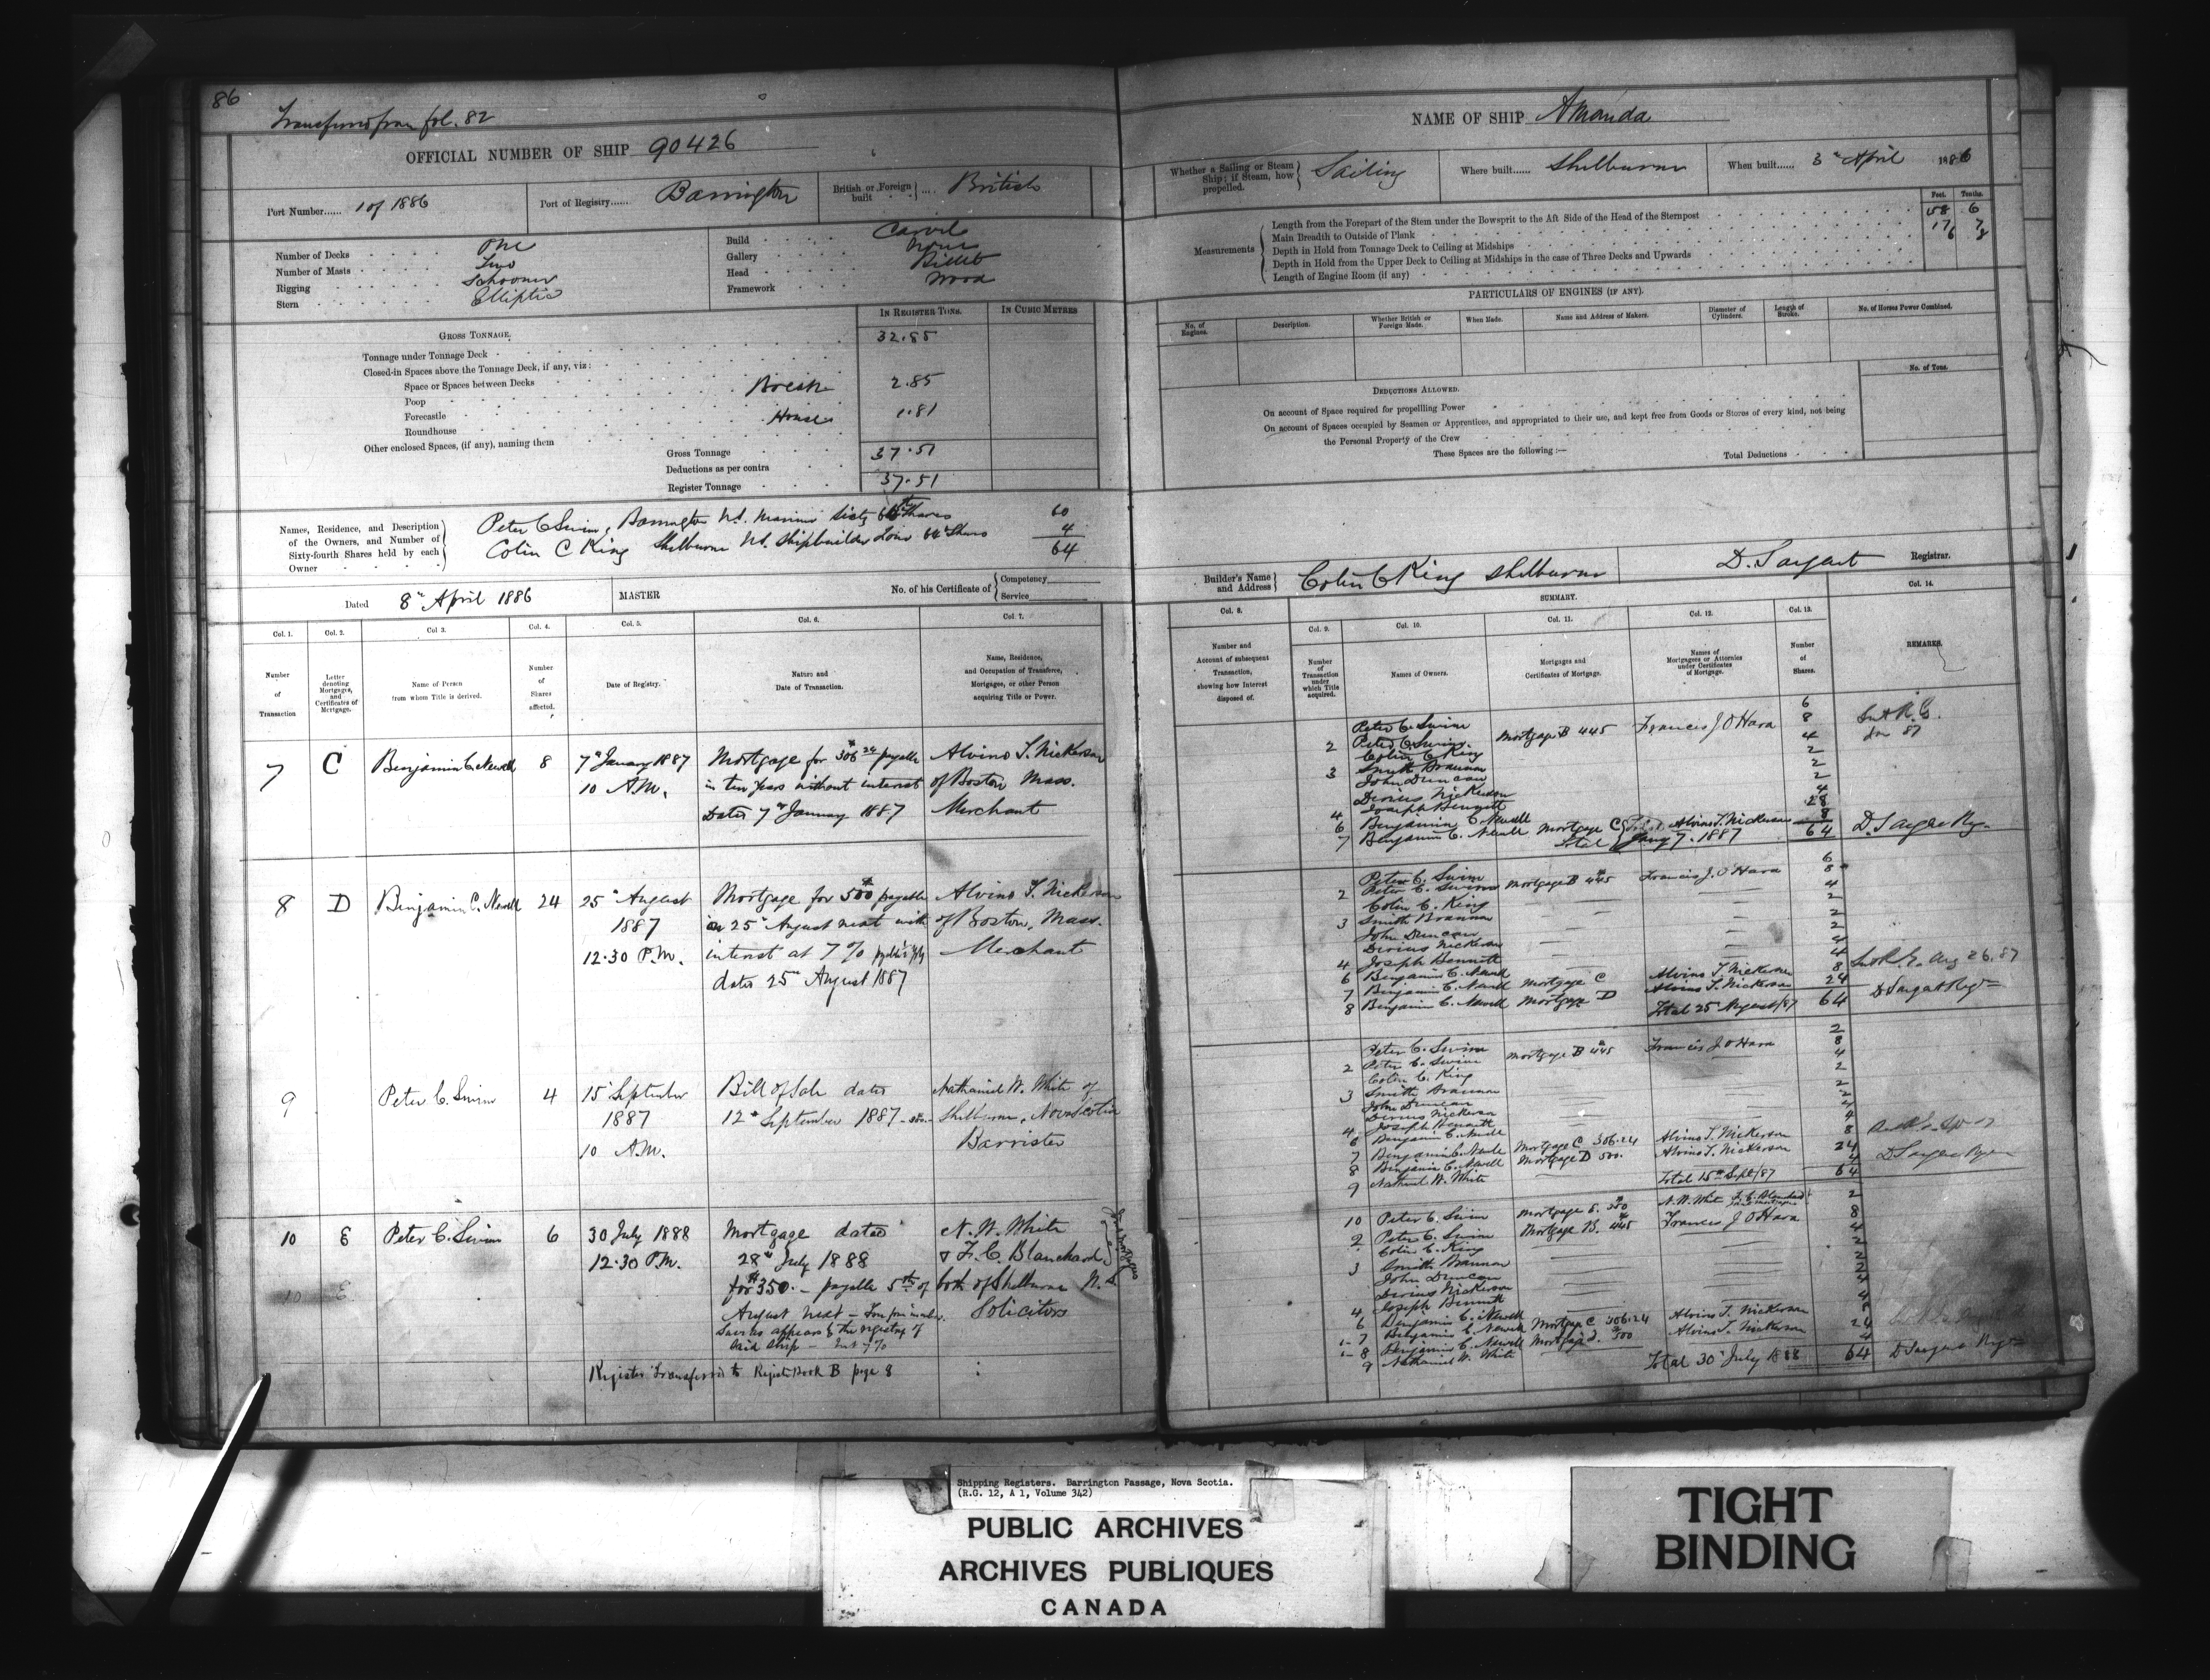 86
Transferred from fol. 82
OFFICIAL NUMBER OF SHIP 90426
Port Number...... 1 of 1886
Port of Registry...... Barrington
British or Foreign built .... British
Number of Decks One
Number of Masts Two
Rigging Schooner
Stern Elliptic
Build Carvel
Gallery None
Head Billet
Framework Wood
IN REGISTER TONS.
IN CUBIC METRES
GROSS TONNAGE.
Tonnage under Tonnage Deck 32.85
Closed-in Spaces above the Tonnage Deck, if any, viz:
Space or Spaces between Decks Break 2.85
Poop
Forecastle House 1.81
Roundhouse
Other enclosed Spaces, (if any), naming them
Gross Tonnage 37.51
Deductions as per contra
Register Tonnage 37.51
Names, Residence, and Description of the Owners, and Number of Sixty-fourth Shares held by each Owner
Peter C Swim, Barrington N.S. Mariner Sixty 64th Shares 60
Colin C King Shelburne N.S. Shipbuilder Four 64th Shares 4
64
Dated 8th April 1886
MASTER
No. of his Certificate of Competency Service
Col. 1. Col. 2. Col 3. Col. 4. Col. 5. Col. 6. Col. 7.
Number of Transaction
Letter denoting Mortgages, and Certificates of Mortgage.
Name of Person from whom Title is derived.
Number of Shares affected.
Date of Registry.
Nature and Date of Transaction.
Name, Residence, and Occupation of Transferee, Mortgagee, or other Person acquiring Title or Power.
7 C Benjamin C. Newell 8 7th January 1887 Mortgage for $306.24 payable Alvino T. Nickerson
10 A.M. in ten years without interest of Boston Mass.
Dated 7th January 1887 Merchant
8 D Benjamin C. Newell 24 25th August Mortgage for $500 payable Alvino T. Nickerson
1887 on 25th August next with of Boston, Mass.
12.30 P.M. interest at 7% Merchant
dated 25th August 1887
9 Peter C. Swim 4 15th September Bill of Sale dated Nathaniel W. White of
1887 12th September 1887 Shelburne, Nova Scotia
10 A.M. Barrister
10 E Peter C. Swim 6 30 July 1888 Mortgage dated N. W. White
12.30 P.M. 28th July 1888 & F. C. Blanchard
for $350. - payable 5th of both of Shelburne N.S.
10 E August next Solicitors
appears by the registry of
said ship - Int 7%
Register Transferred to Register Book B page 8
NAME OF SHIP Amanda
Whether a Sailing or Steam Ship; if Steam, how propelled. Sailing
Where built...... Shelburne
When built...... 3rd April 1886
Feet. Tenths.
Measurements
Length from the Forepart of the Stem under the Bowsprit to the Aft Side of the Head of the Sternpost 58 6
Main Breadth to Outside of Plank 17 7
Depth in Hold from Tonnage Deck to Ceiling at Midships 6 8
Depth in Hold from the Upper Deck to Ceiling at Midships in the case of Three Decks and Upwards
Length of Engine Room (if any)
PARTICULARS OF ENGINES (IF ANY).
No. of Engines.
Description.
Whether British or Foreign Made.
When Made.
Name and Address of Makers.
Diameter of Cylinders.
Length of Stroke.
No. of Horses Power Combined.
DEDUCTIONS ALLOWED.
No. of Tons.
On account of Space required for propelling Power
On account of Spaces occupied by Seamen or Apprentices, and appropriated to their use, and kept free from Goods or Stores of every kind, not being
the Personal Property of the Crew
These Spaces are the following :—
Total Deductions
Builder's Name and Address Colin C King Shelburne
D. Sargent Registrar.
SUMMARY.
Col. 8. Col. 9. Col. 10. Col. 11. Col. 12. Col. 13. Col. 14.
Number and Account of subsequent Transaction, showing how Interest disposed of.
Number of Transaction under which Title acquired.
Names of Owners.
Mortgages and Certificates of Mortgage.
Names of Mortgagees or Attornies under Certificates of Mortgage.
Number of Shares.
REMARKS.
Peter C. Swim 6
2 Peter C. Swim Mortgage B 445 Francis J O'Hara 8
Colin C. King 4
3 Smith Brannan 2
John Duncan 2
Dirius Nickerson 2
4 Joseph Bennett 4
6 Benjamin C. Newell 28
7 Benjamin C. Newell Mortgage C Alvino T. Nickerson 8
Total Jany 7. 1887 64 D. Sargent Reg.
Peter C. Swim 6
2 Peter C. Swim Mortgage B 445 Francis J. O'Hara 8
Colin C. King 4
3 Smith Brannan 2
John Duncan 2
Dirius Nickerson 2
4 Joseph Bennett 4
6 Benjamin C. Newell 4
7 Benjamin C. Newell Mortgage C Alvino T. Nickerson 8
8 Benjamin C. Newell Mortgage D Alvino T. Nickerson 24
Total 25 August/87 64 D Sargent Regr
Aug 26. 87
Peter C. Swim 2
2 Peter C. Swim Mortgage B 445 Francis J O'Hara 8
Colin C. King 4
3 Smith Brannan 2
John Duncan 2
Dirius Nickerson 2
4 Joseph Bennett 4
6 Benjamin C. Newell 4
7 Benjamin C. Newell Mortgage C 306.24 Alvino T. Nickerson 8
8 Benjamin C. Newell Mortgage D 500. Alvino T. Nickerson 24
9 Nathaniel W. White 4
Total 15th Sept/87 64
10 Peter C. Swim Mortgage E. 350 N. W. White F. C. Blanchard 2
2 Peter C. Swim Mortgage B. 445 Francis J O'Hara 8
Colin C. King 4
3 Smith Brannan 2
John Duncan 2
Dirius Nickerson 2
4 Joseph Bennett 4
6 Benjamin C. Newell 4
7 Benjamin C. Newell Mortgage C 306.24 Alvino T. Nickerson 8
8 Benjamin C. Newell Mortgage D. 500 Alvino T. Nickerson 24
9 Nathaniel W. White 4
Total 30 July 1888 64 D Sargent Regr
Shipping Registers. Barrington Passage, Nova Scotia.
(R.G. 12, A 1, Volume 342)
PUBLIC ARCHIVES
ARCHIVES PUBLIQUES
CANADA
TIGHT
BINDING